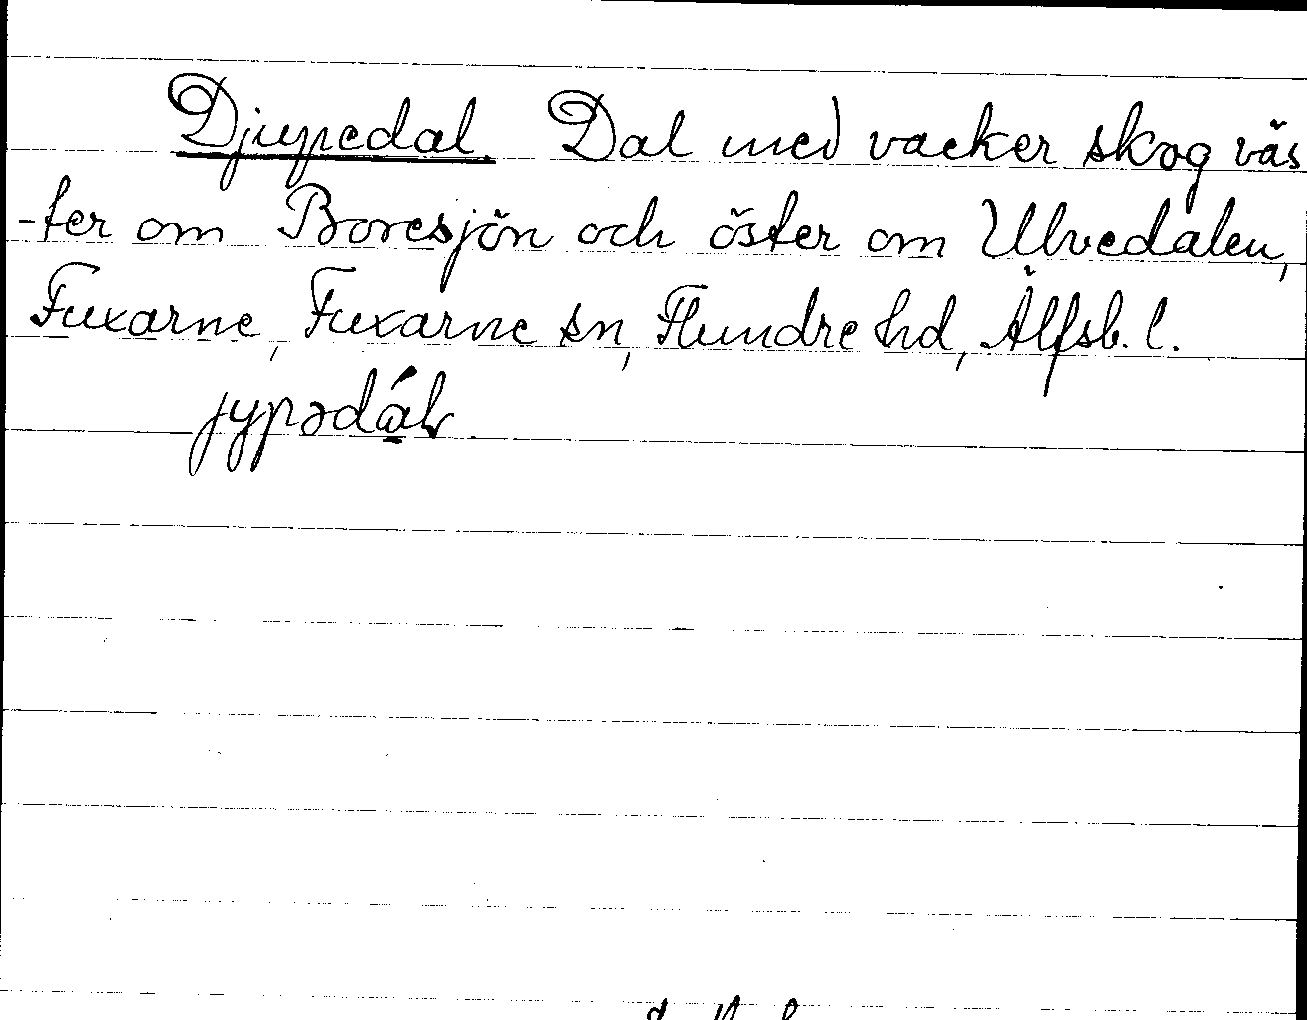 Djupedal. Dal med vacker skog väs
-ter om Boresjön och öster om Ulvedalen,
Fuxarne, Fuxarne sn, Flundre hd, Älfsb. l.
jypədál